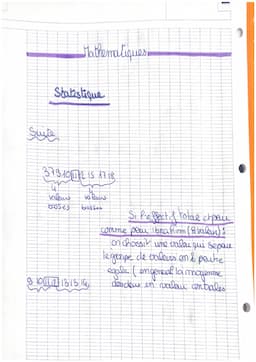 Mathématiques
Statistique
Suite
3 7 9 10 11 12 15 17 18
4 4
valeurs valeurs
basses
Si l'effectif total est pair
comme pour Ibrahim (8 valeurs) :
on choisit une valeur qui sépare
le groupe de valeurs en 2 partie
égale (en général la moyenne
des deux valeurs centrales
9 10 11 12 13 15 16